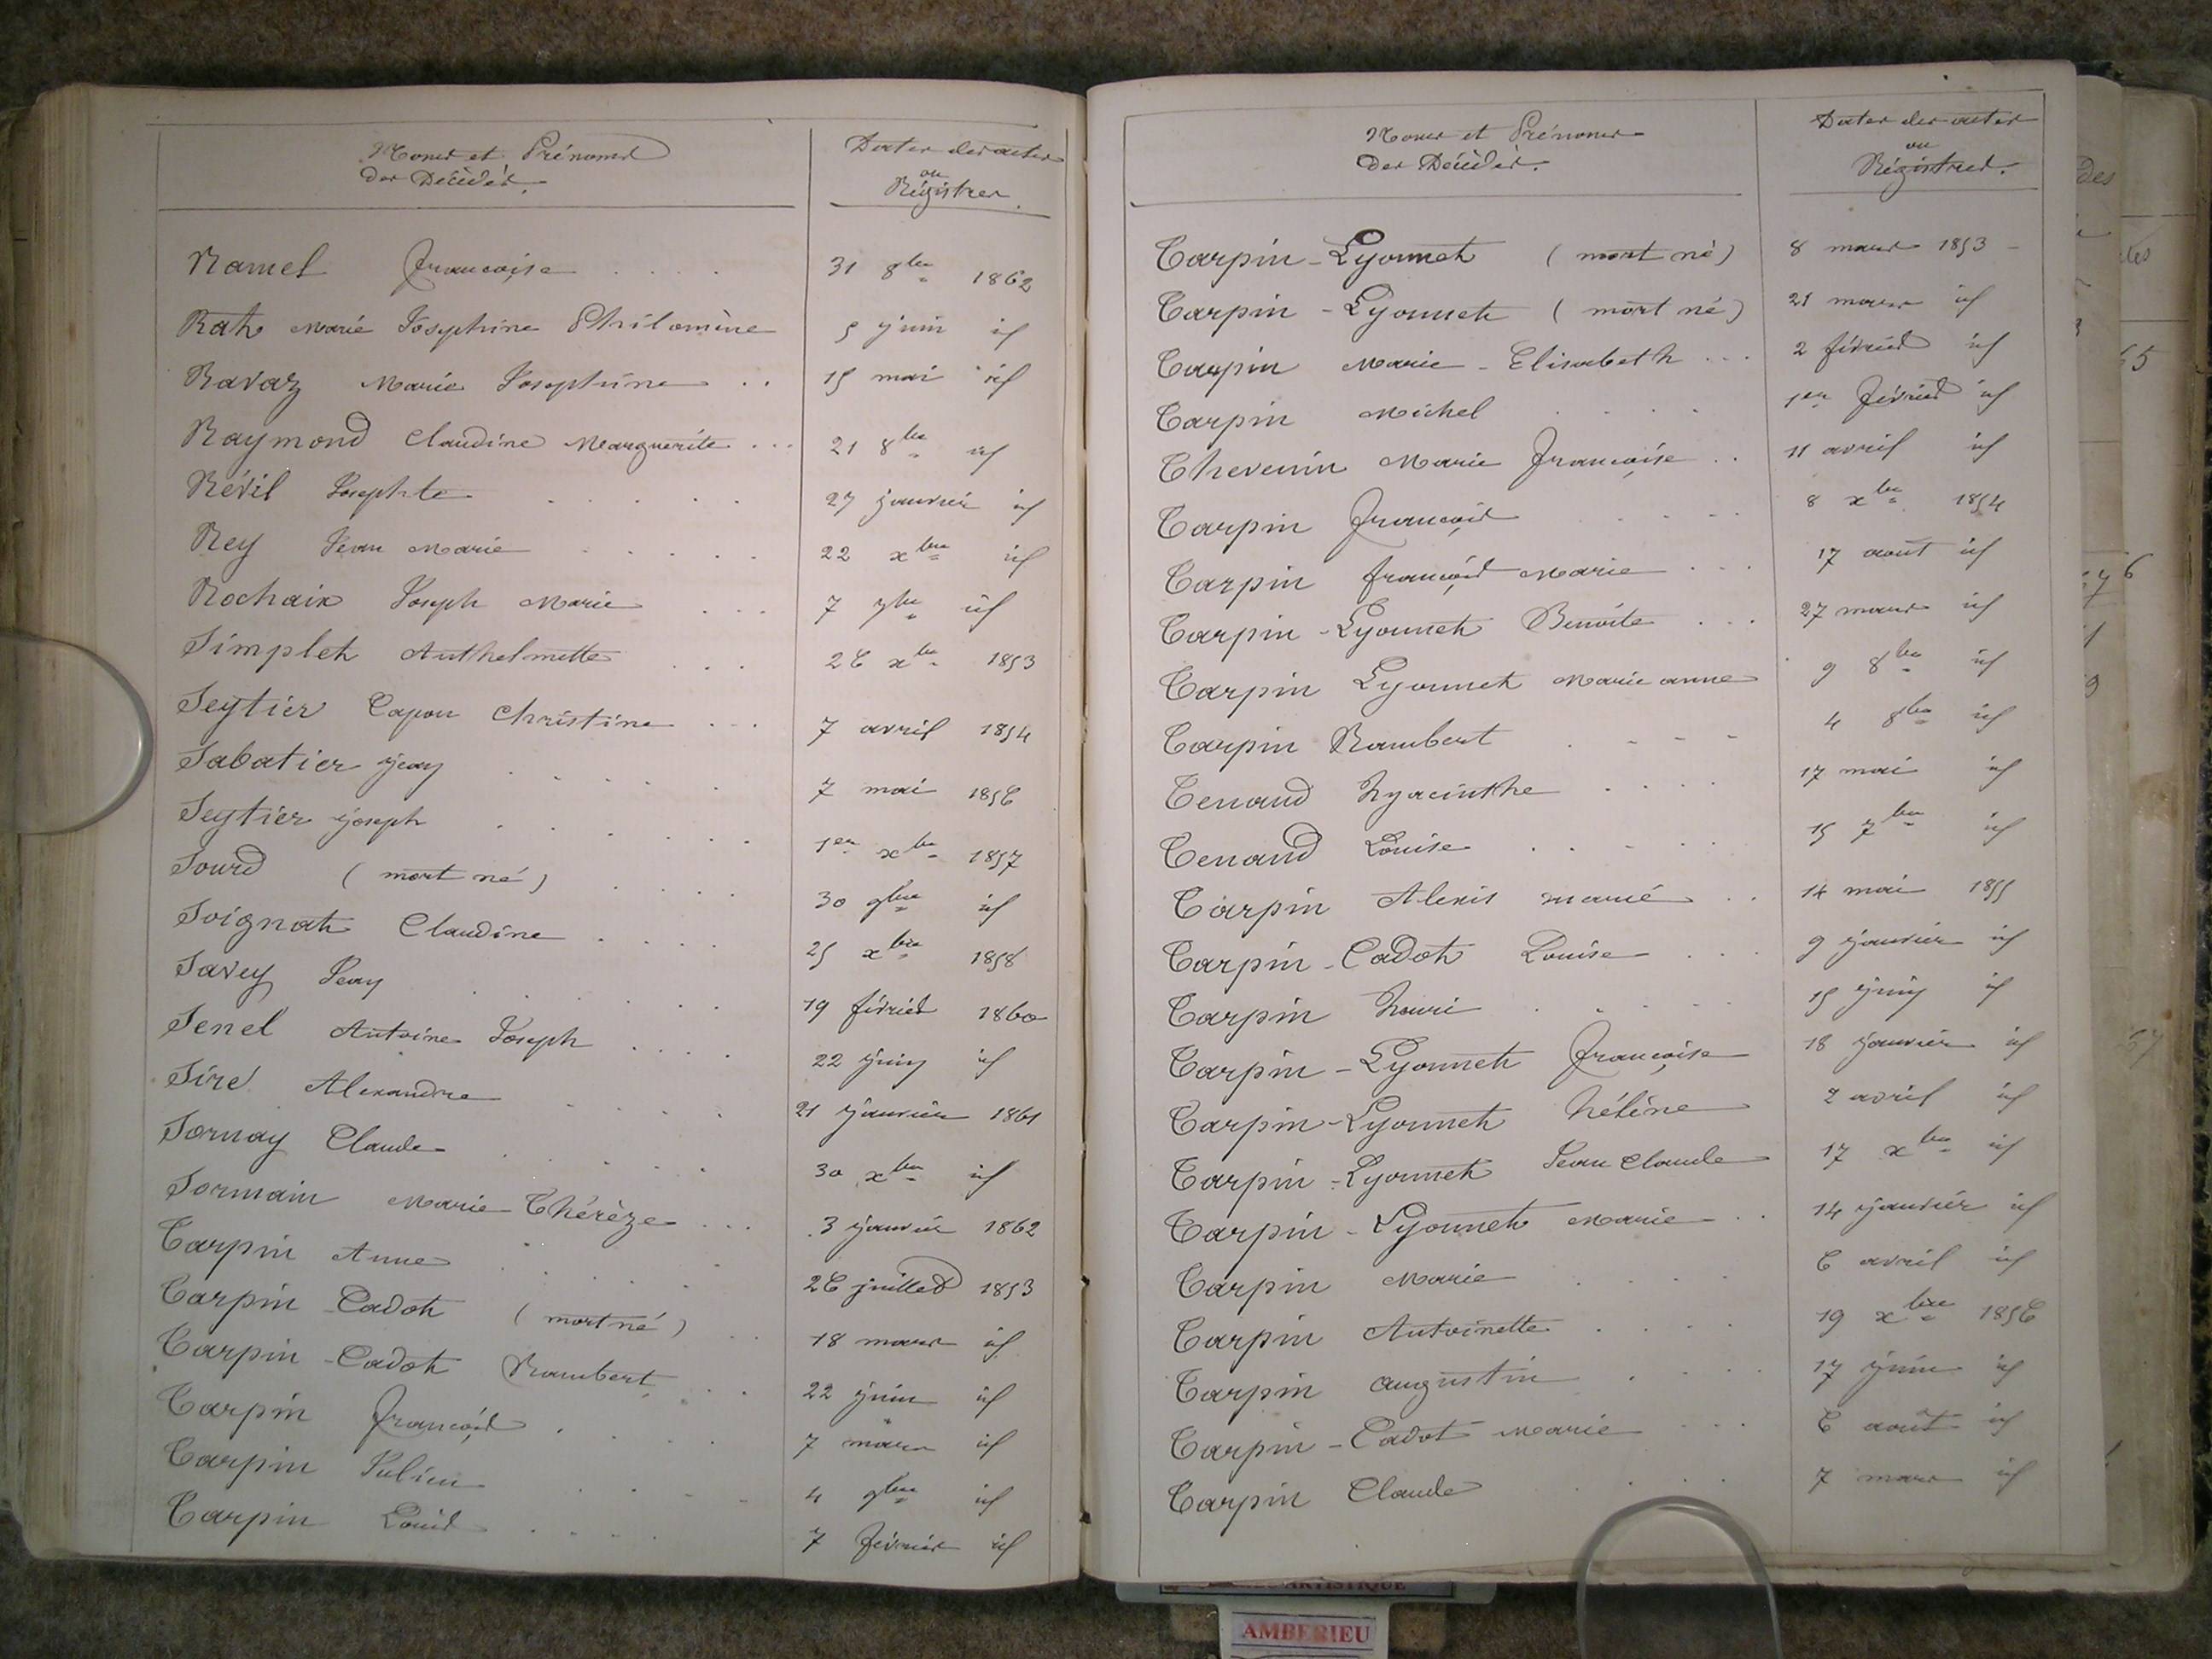 Noms et Prénoms
des Décédés.
Dates des actes
ou
Régistres.
Ramel Françoise 31 8bre 1862
Rath Marie Josephine Philomène 5 juin id
Ravaz Marie Josephine 15 mai id
Raymond Claudine Marguerite 21 8bre id
Révil Josephte 27 janvier id
Rey Jean Marie 22 xbre id
Rochaix Joseph Marie 7 7bre id
Simplet Anthelmette 26 xbre 1853
Seytier Capon Christine 7 avril 1854
Sabatier Jean 7 mai 1856
Seytier Joseph 1er xbre 1857
Sourd (mort né) 30 9bre id
Soignat Claudine 25 xbre 1858
Savey Jean 19 février 1860
Senel Antoine Joseph 22 juin id
Siré Alexandre 21 janvier 1861
Sornay Claude 30 xbre id
Sormain Marie Thérèze 3 janvier 1862
Tarpin Anne 26 juillet 1853
Tarpin Cadot (mort né) 18 mars id
Tarpin-Cadot Rambert 22 juin id
Tarpin François 7 mars id
Tarpin Julien 4 9bre id
Tarpin Louis 7 février id
Noms et Prénoms
des Décédés.
Dates des actes
ou
Régistres.
Tarpin-Lyonnet (mort né) 8 mars 1853
Tarpin-Lyonnet (mort né) 21 mars id
Tarpin Marie-Elisabeth 2 février id
Tarpin Michel 1er février id
Thevenin Marie Françoise 11 avril id
Tarpin François 8 xbre 1854
Tarpin François Marie 17 août id
Tarpin-Lyonnet Benoite 27 mars id
Tarpin Lyonnet Marie anne 9 8bre id
Tarpin Rambert 4 8bre id
Tenand Hyacinthe 17 mai id
Tenand Louise 15 7bre id
Tarpin Alexis marie 14 mai 1855
Tarpin-Cadot Louise 9 janvier id
Tarpin Henri 15 juin id
Tarpin-Lyonnet Françoise 18 janvier id
Tarpin-Lyonnet Hélène 2 avril id
Tarpin-Lyonnet Jean Claude 17 xbre id
Tarpin-Lyonnet Marie 14 janvier id
Tarpin Marie 6 avril id
Tarpin Antoinette 19 xbre 1856
Tarpin augustin 17 juin id
Tarpin-Cadot Marie 6 août id
Tarpin Claude 7 mars id
AMBERIEU